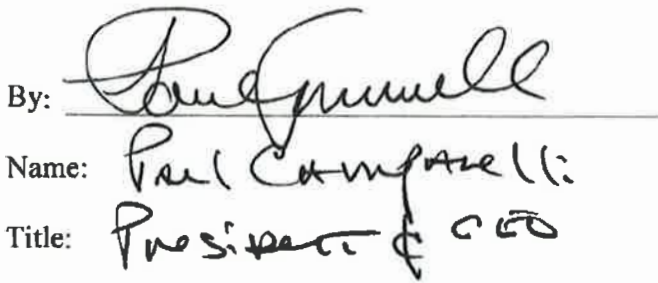 By: Paul
Name: Paul Campanelli
Title: President & CEO